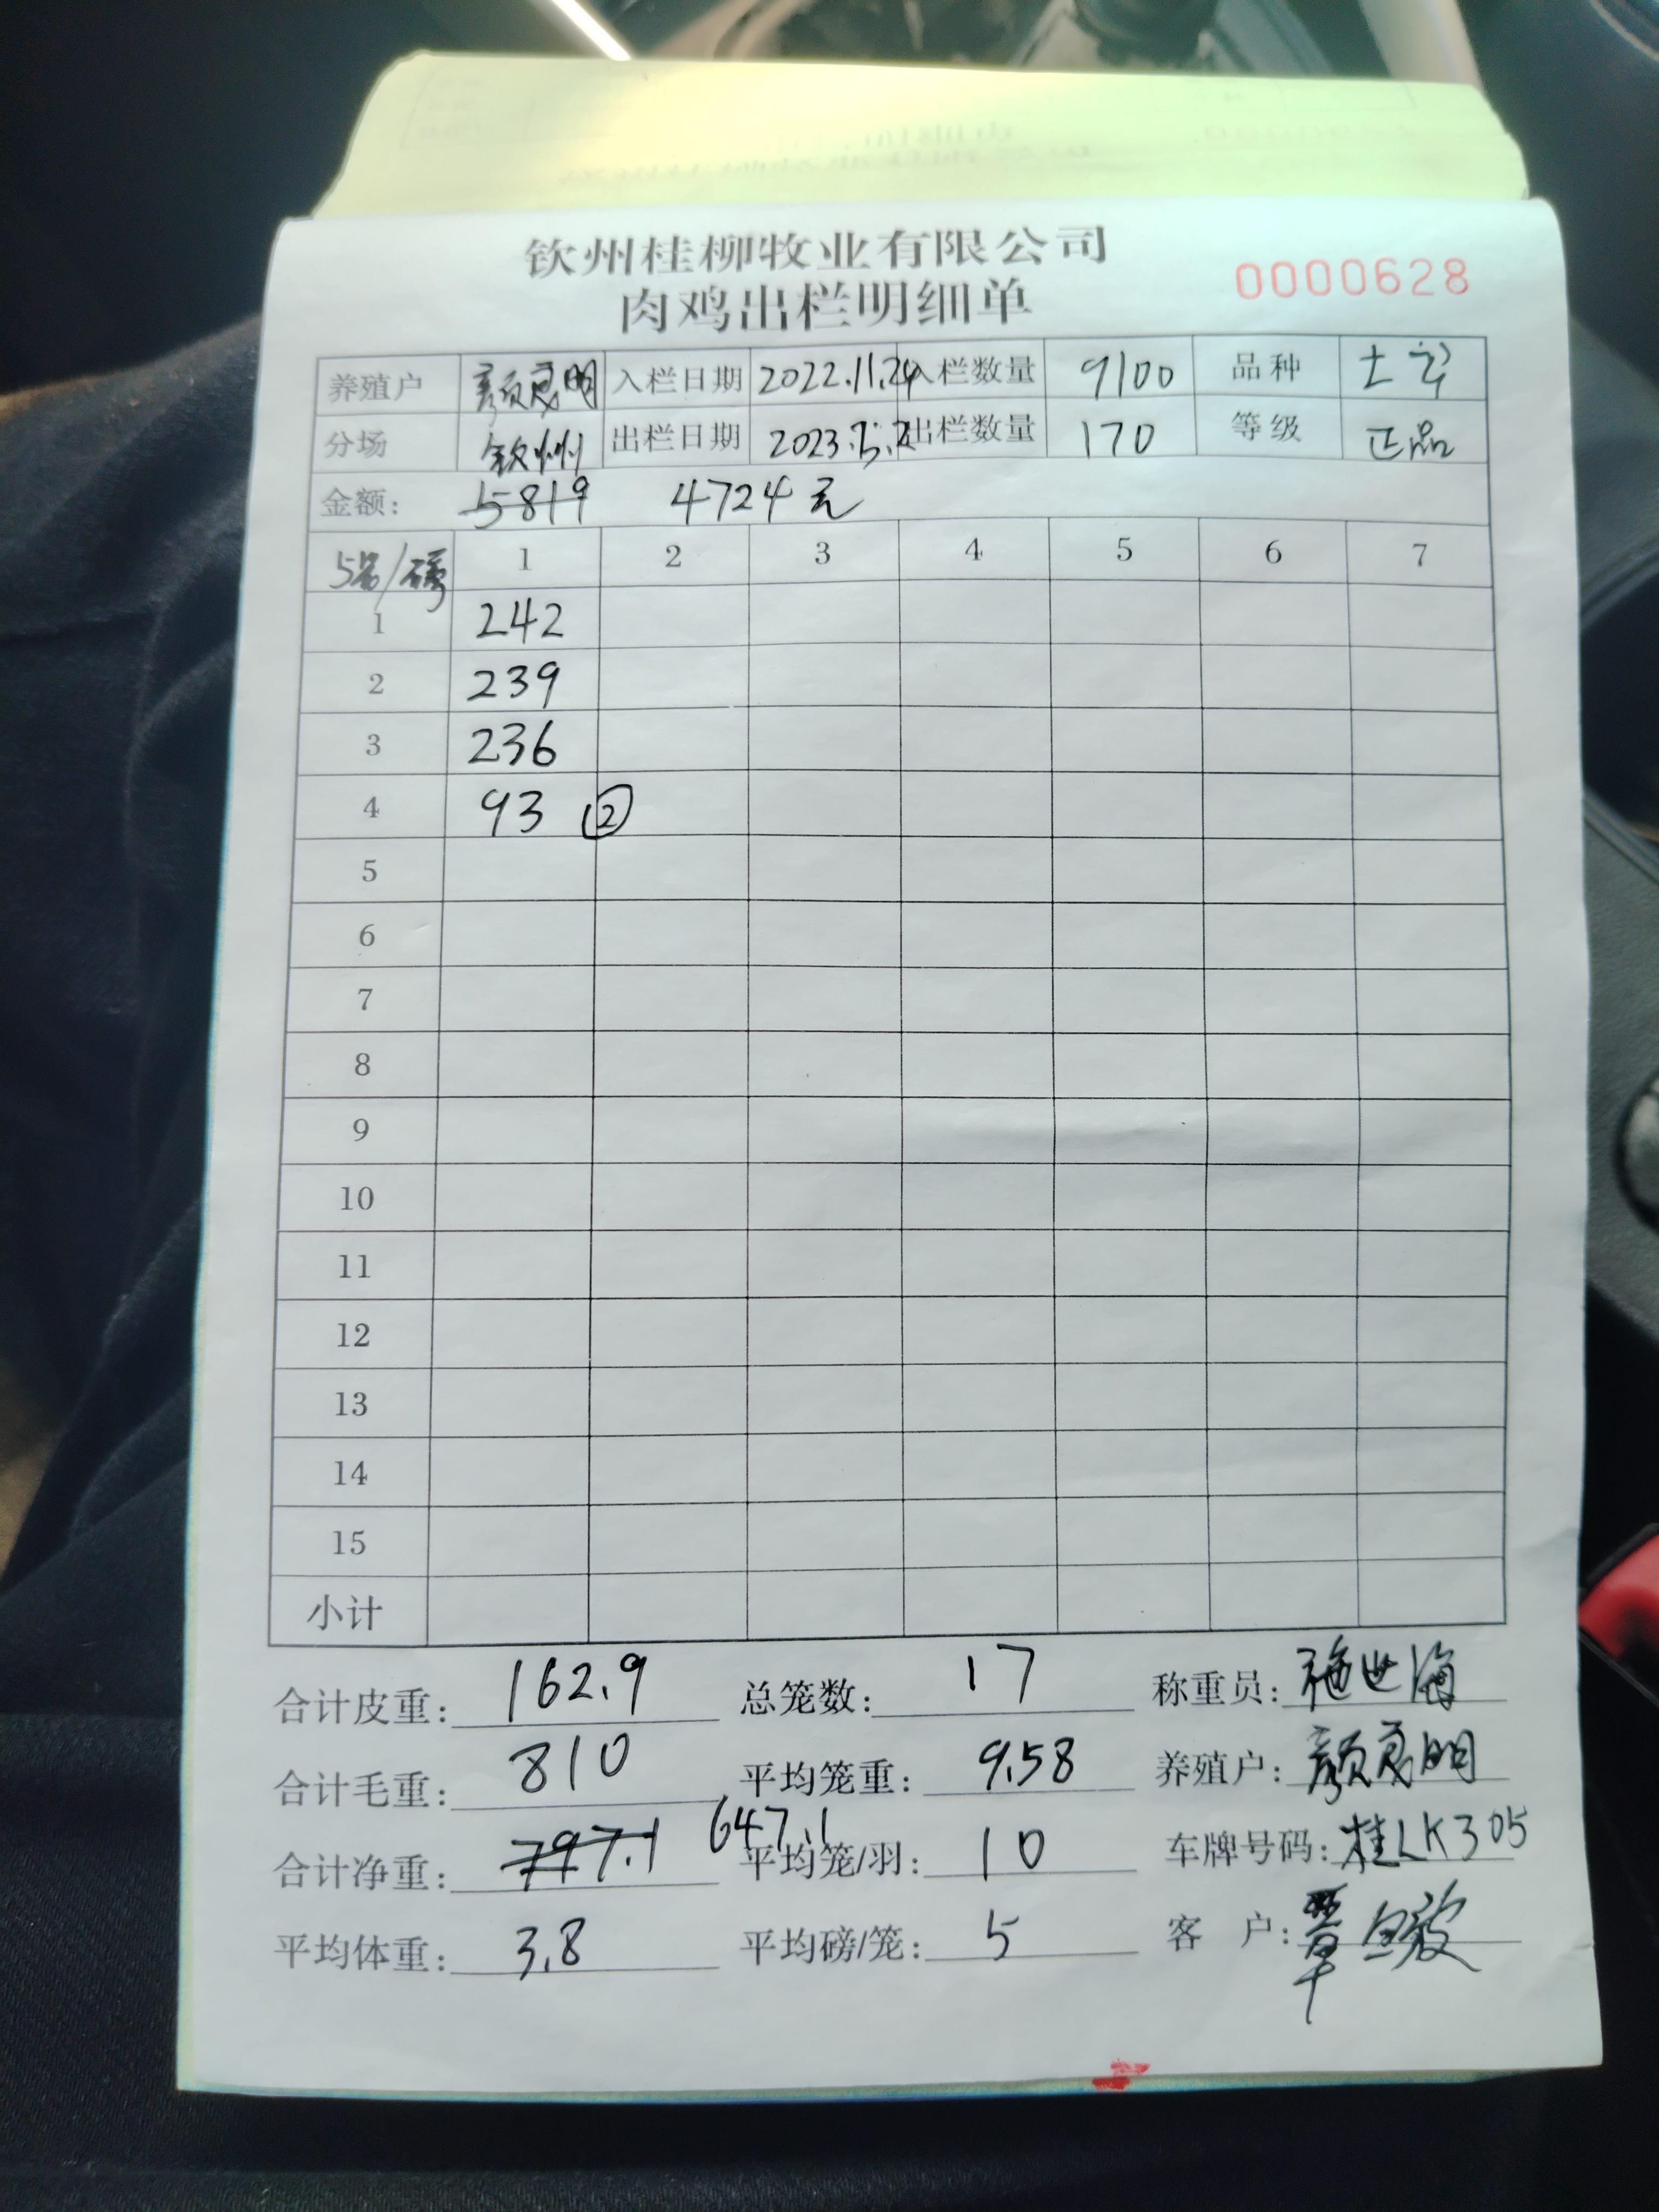 钦州桂柳牧业有限公司
肉鸡出栏明细单
0000628
养殖户 颜茂明 入栏日期 2022.11.24 入栏数量 9100 品种 土
分场 钦州 出栏日期 2023. 出栏数量 170 等级 正品
金额: 5819 4724元
5笼/磅 1 2 3 4 5 6 7
1 242
2 239
3 236
4 93 ②
5
6
7
8
9
10
11
12
13
14
15
小计
合计皮重: 162.9 总笼数: 17 称重员: 施世海
合计毛重: 810 平均笼重: 9.58 养殖户: 颜茂明
合计净重: 797.1 647.1 平均笼/羽: 10 车牌号码: 桂LK305
平均体重: 3.8 平均磅/笼: 5 客 户: 覃